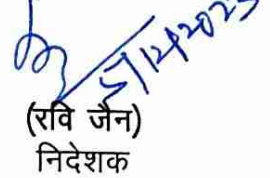 5/12/2023
(रवि जैन)
निदेशक